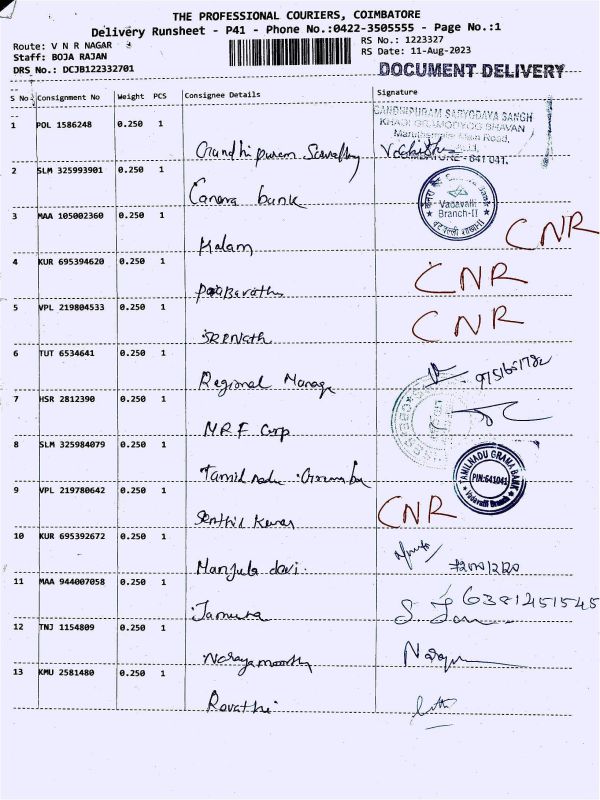 THE PROFESSIONAL COURIERS, COIMBATORE
Delivery Runsheet - P41 - Phone No.:0422-3505555 - Page No.:1
Route: V N R NAGAR
RS No.: 1223327
Staff: BOJA RAJAN
RS Date: 11-Aug-2023
DRS No.: DCJB122332701
DOCUMENT DELIVERY
S No Consignment No Weight PCS Consignee Details Signature
GANDHIPURAM SARVODAYA SANGH
KHADI GRAMODYOG BHAVAN
Road,
COIMBATORE - 641 041.
1 POL 1586248 0.250 1
2 SLM 325993901 0.250 1
Canara bank
Vadavalli
Branch-II
3 MAA 105002360 0.250 1
Kalam CNR
4 KUR 695394620 0.250 1
CNR
5 VPL 219804533 0.250 1
CNR
6 TUT 6534641 0.250 1
Regional Manage
7 HSR 2812390 0.250 1
MRF Corp
8 SLM 325984079 0.250 1
Tamil nadu
TAMILNADU GRAMA BANK
PIN:641041
Vadavalli Branch
9 VPL 219780642 0.250 1
CNR
10 KUR 695392672 0.250 1
Manjula devi
11 MAA 944007058 0.250 1
6381451545
12 TNJ 1154809 0.250 1
13 KMU 2581480 0.250 1
Revathi